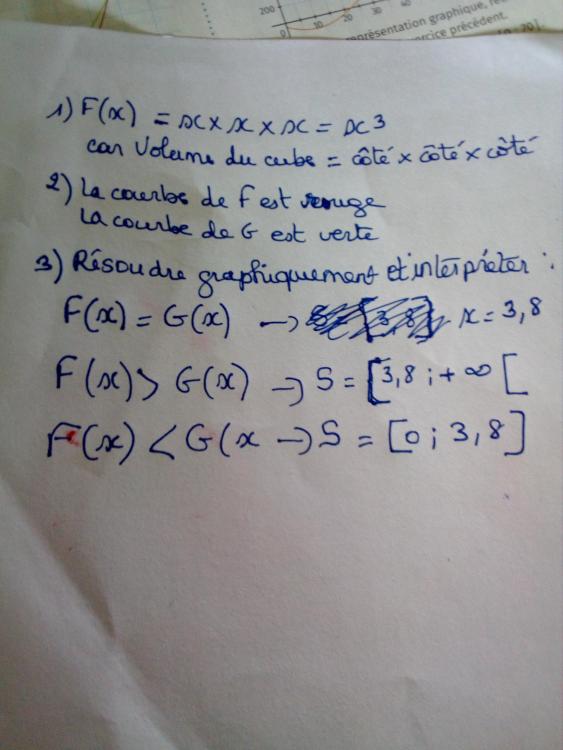 200
0
10
20
30
40
représentation graphique,
exercice précédent.
1) F(x) = x × x × x = x3
car Volume du cube = côté × côté × côté
2) La courbe de F est rouge
La courbe de G est verte
3) Résoudre graphiquement et interpréter :
F(x) = G(x) → x = 3,8
F(x) > G(x) → S = [3,8 ; + ∞ [
F(x) < G(x → S = [0 ; 3,8]